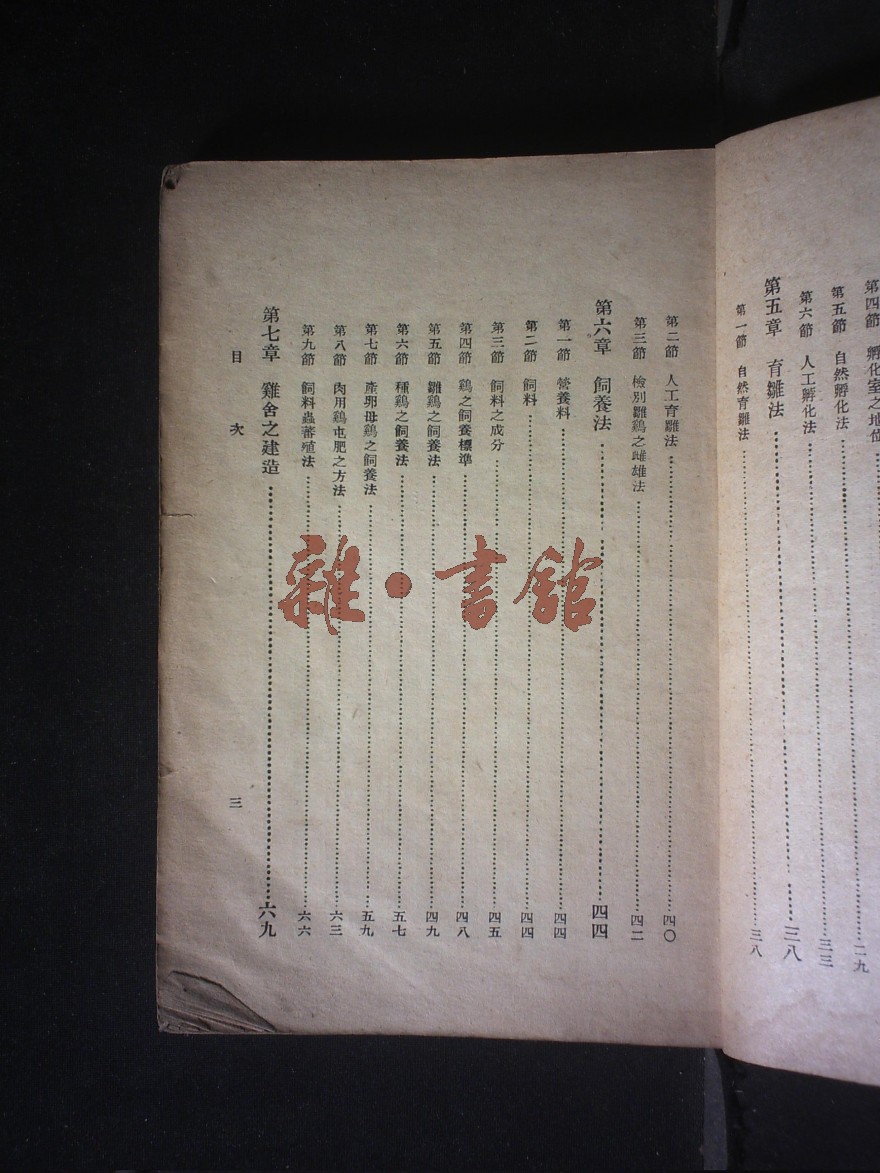 第四節 孵化室之地位……二九
第五節 自然孵化法……三三
第六節 人工孵化法
第五章 育雛法……三八
第一節 自然育雛法……三八
第二節 人工育雛法……四〇
第三節 檢別雛鷄之雌雄法……四二
第六章 飼養法……四四
第一節 營養料……四四
第二節 飼料……四四
第三節 飼料之成分……四五
第四節 鷄之飼養標準……四八
第五節 雛鷄之飼養法……四九
第六節 種鷄之飼養法……五七
第七節 產卵母鷄之飼養法……五九
第八節 肉用鷄屯肥之方法……六三
第九節 飼料蟲蕃殖法……六六
第七章 雞舍之建造……六九
目次 三
雜·書館